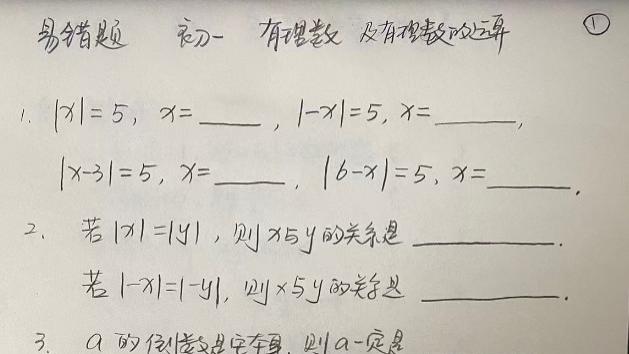 易错题 初一 有理数 及有理数的运算 ①
1. |x|=5, x=____, |-x|=5, x=____,
|x-3|=5, x=____, |6-x|=5, x=____.
2. 若|x|=|y|, 则x与y的关系是____.
若|-x|=|-y|, 则x与y的关系是____.
3. a的倒数是它本身, 则a一定是